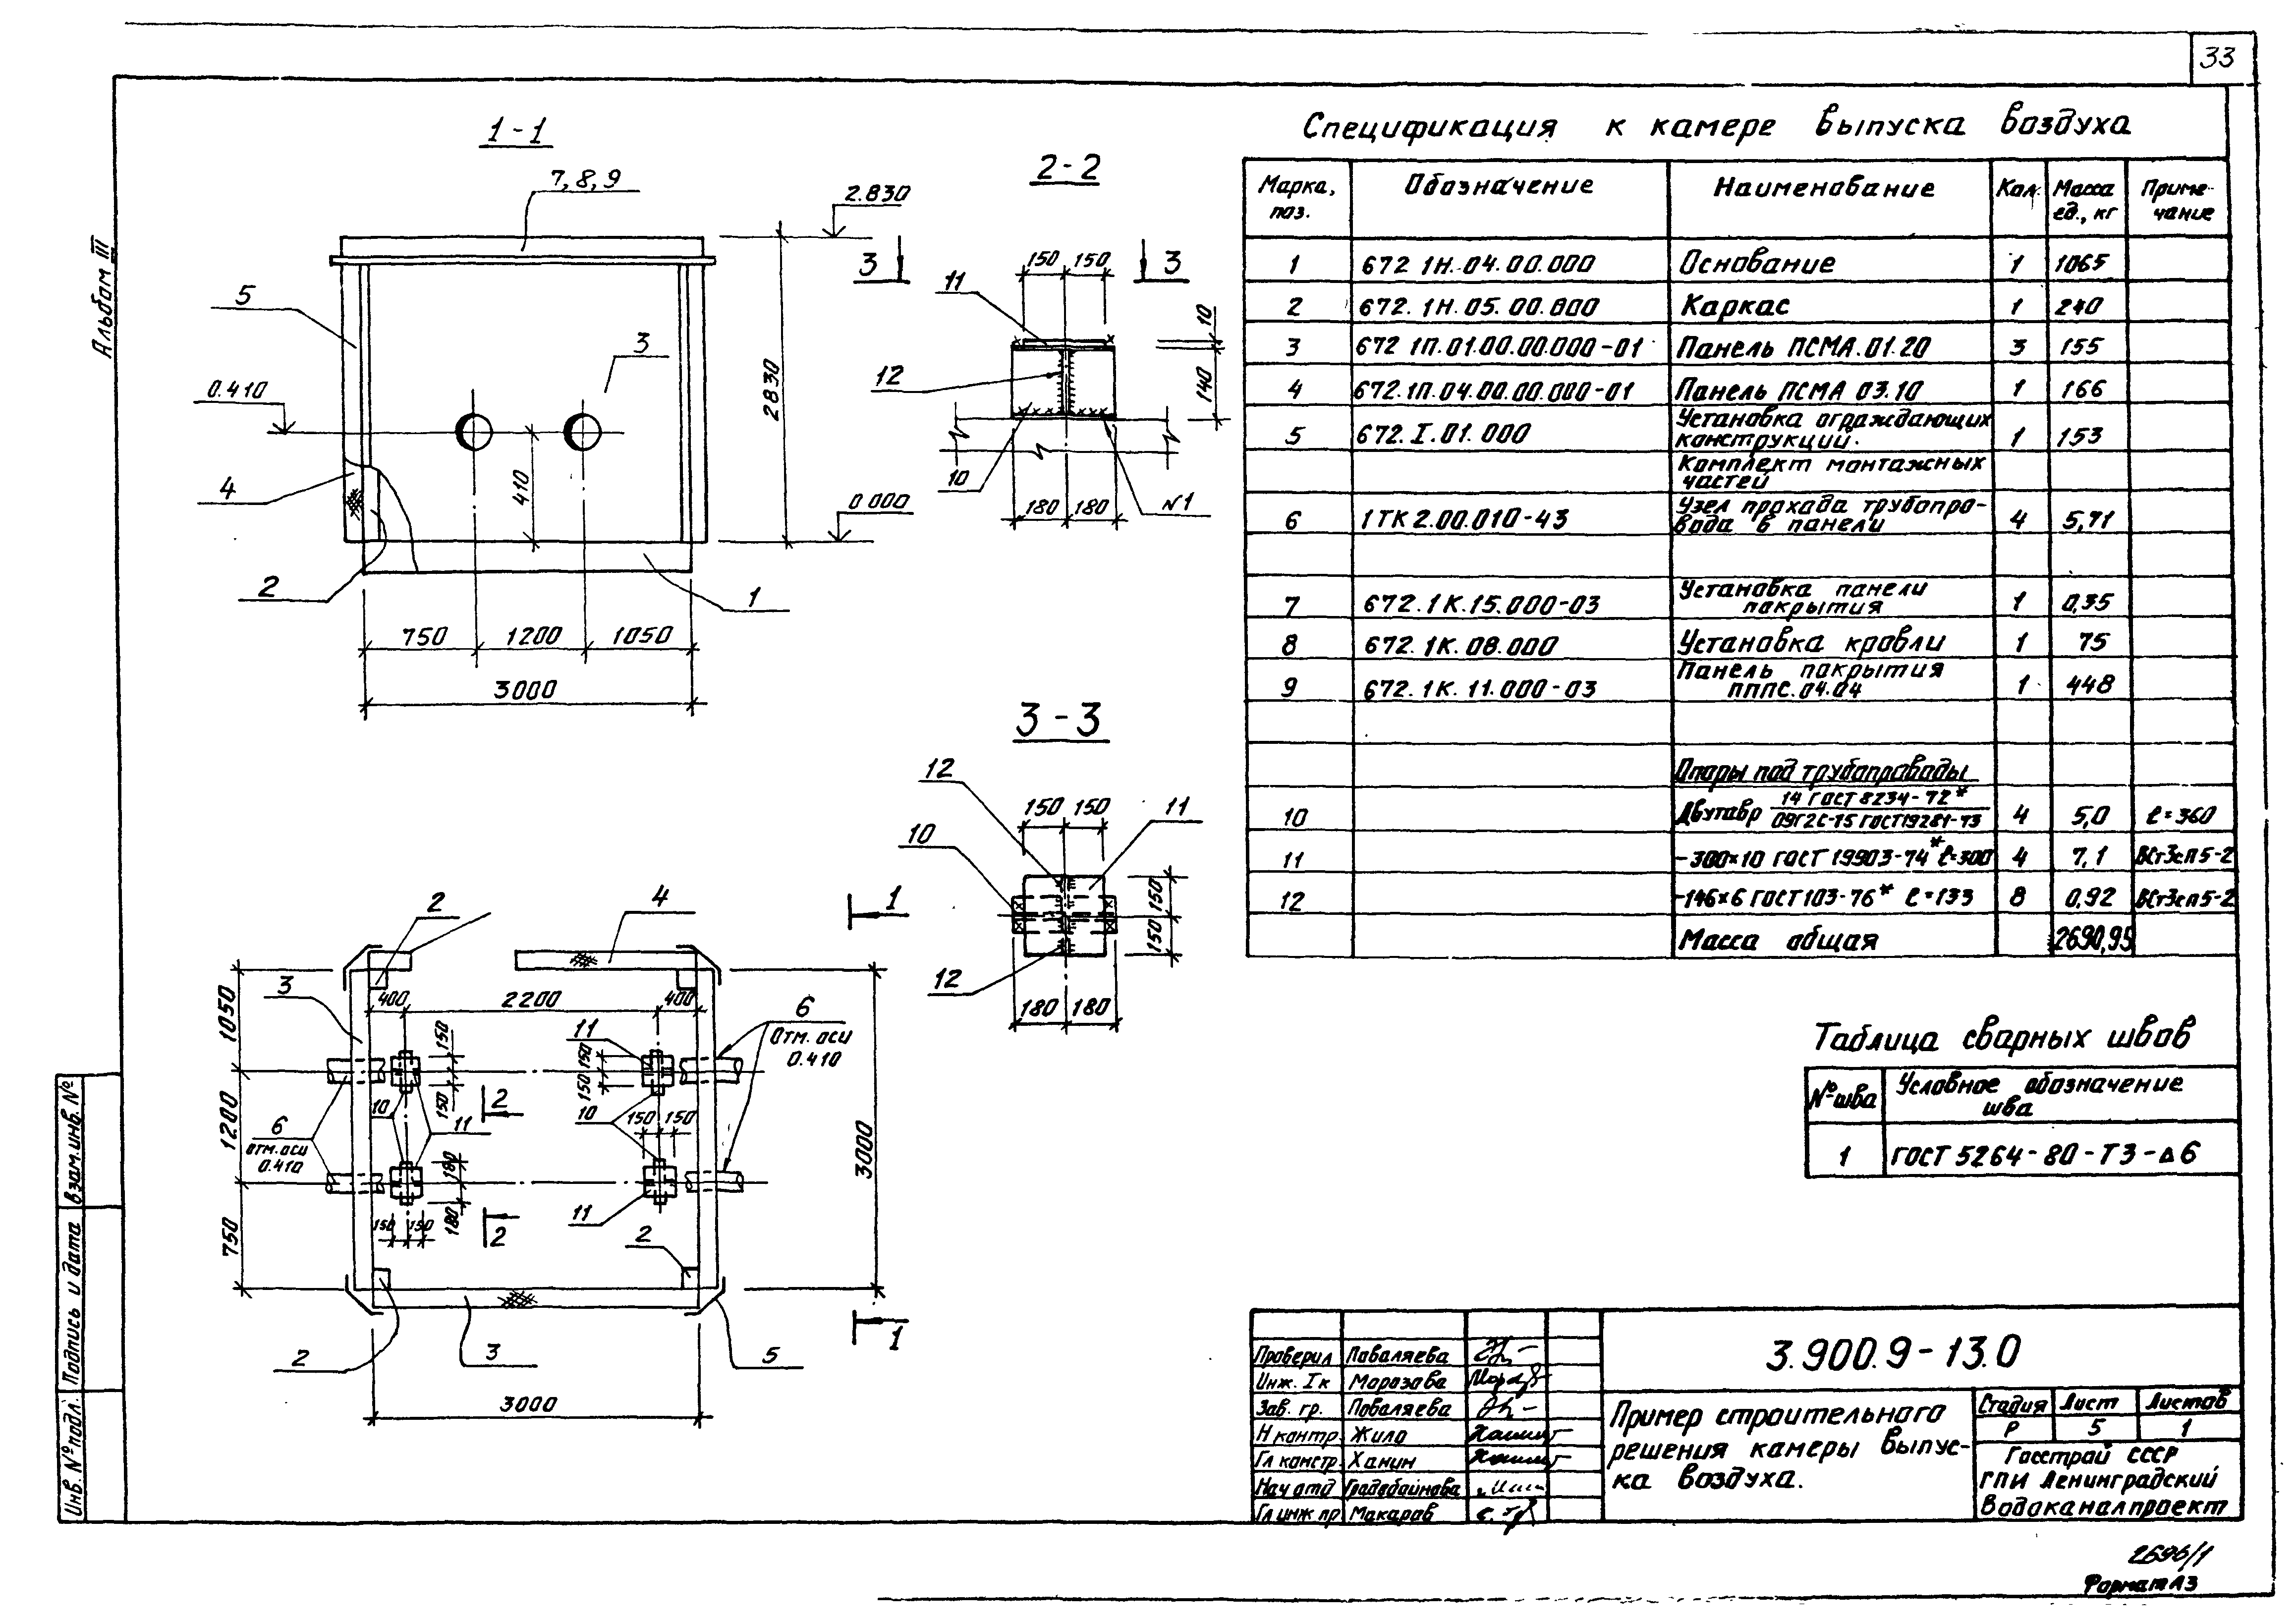 33
Альбом III
1-1
7, 8, 9
2.830
5
3
0.410
4
410
2830
0.000
2
1
750 1200 1050
3000
2-2
3 3
150 150
11
12
10
140
10
180 180
N1
3-3
12
150 150
11
10
150
150
12
180 180
2
4
1
3
400 2200 400
1050
1200
750
6
Отм. оси
0.410
11
150
150
150
150
10
10
150 150
2
11
6
Отм. оси
0.410
180
180
150 150
2
11
2
3000
2
3
5
1
3000
Спецификация к камере выпуска воздуха
Марка, поз. Обозначение Наименование Кол. Масса ед., кг Примечание
1 672 1Н.04.00.000 Основание 1 1065
2 672.1Н.05.00.000 Каркас 1 240
3 672 1П.01.00.00.000-01 Панель ПСМА.01.20 3 155
4 672.1П.04.00.00.000-01 Панель ПСМА 03.10 1 166
Установка ограждающих
5 672.I.01.000 конструкций. 1 153
Комплект монтажных
частей
Узел прохода трубопро-
6 1ТК2.00.010-43 вода в панели 4 5,71
Установка панели
7 672.1К.15.000-03 покрытия 1 0,35
8 672.1К.08.000 Установка кровли 1 75
Панель покрытия
9 672.1К.11.000-03 ПППС.04.04 1 448
Опоры под трубопроводы
10 Двутавр 14 ГОСТ 8234-72* / 09Г2С-15 ГОСТ19281-73 4 5,0 ℓ=360
11 -300×10 ГОСТ 19903-74* ℓ=300 4 7,1 ВСт3сп5-2
12 -146×6 ГОСТ103-76* ℓ=133 8 0,92 ВСт3сп5-2
Масса общая 2690,95
Таблица сварных швов
№ шва Условное обозначение
шва
1 ГОСТ 5264-80-Т3-Δ6
Взам. инв. №
Подпись и дата
Инв. № подл.
Проверил Поваляева
Инж. Iк Морозова
Зав. гр. Поваляева
Н контр. Жило
Гл констр. Ханин
Нач отд Градобойнова
Гл инж пр Макаров
3.900.9-13.0
Пример строительного
решения камеры выпус-
ка воздуха.
Стадия Лист Листов
Р 5 1
Госстрой СССР
ГПИ Ленинградский
Водоканалпроект
2696/1
Формат А3